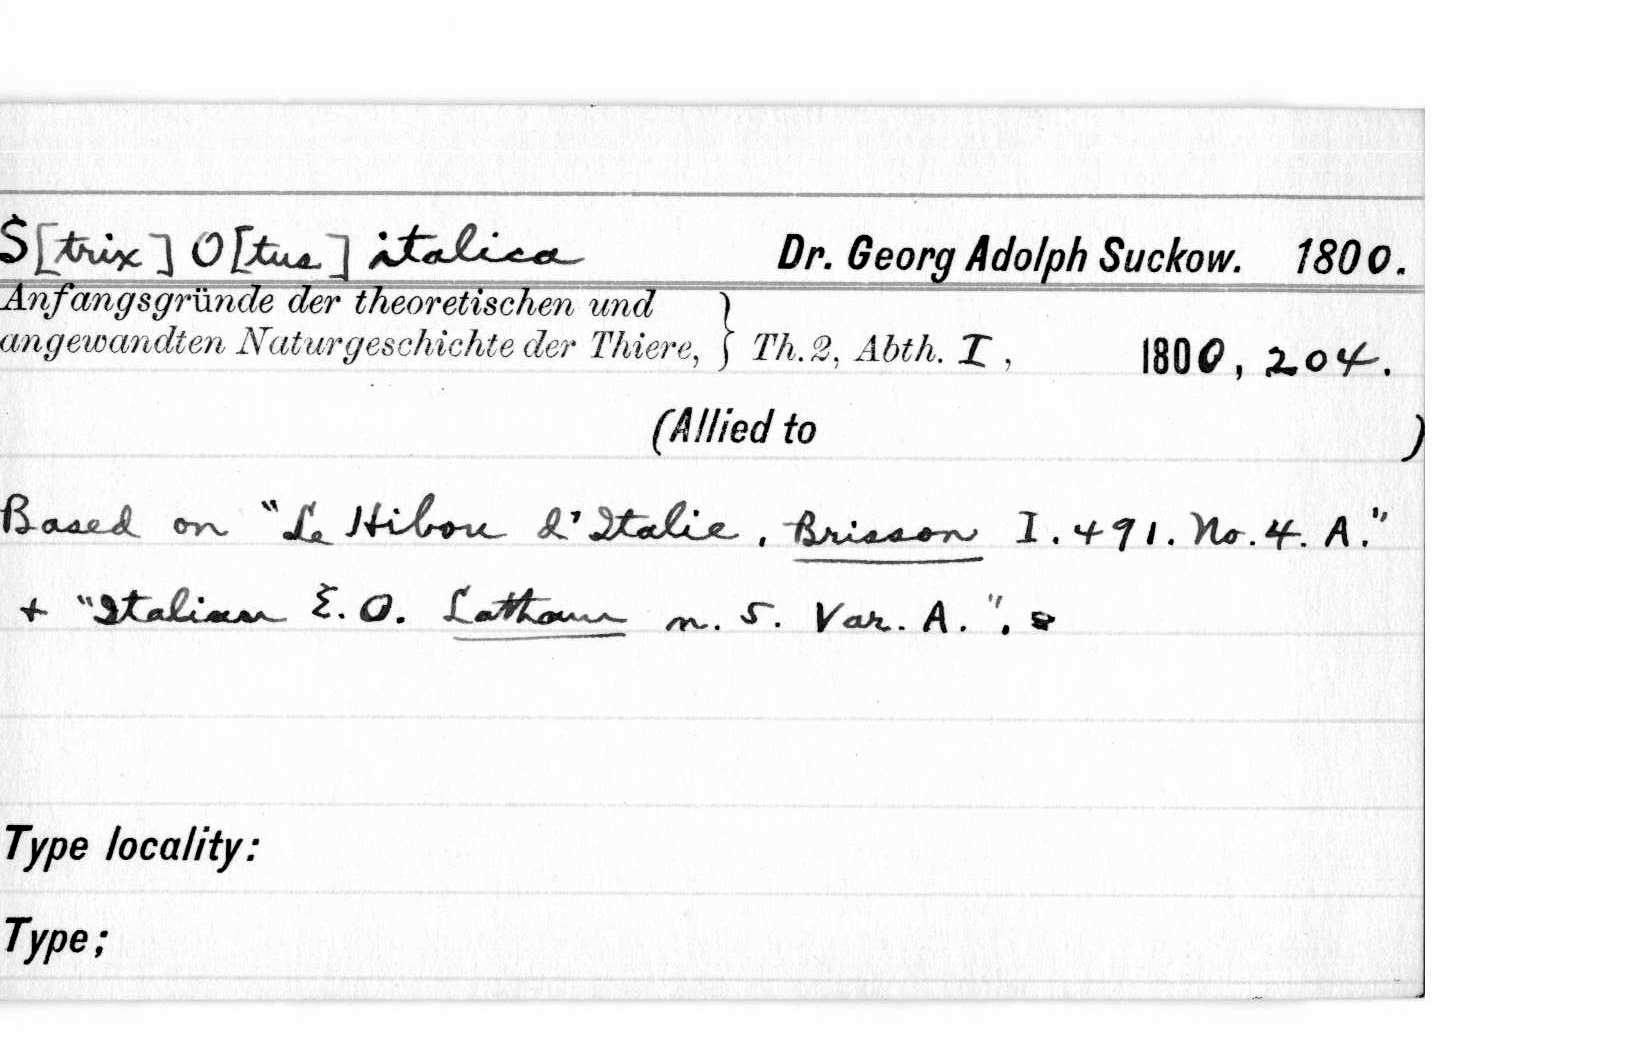 S[trix] O[tus] italica Dr. Georg Adolph Suckow. 1800.
Anfangsgründe der theoretischen und
angewandten Naturgeschichte der Thiere, } Th. 2, Abth. I, 1800, 204.
(Allied to )
Based on "Le Hibou d'Italie, Brisson I. 491. No. 4. A."
+ "Italian E. O. Latham n. 5. Var. A.".
Type locality:
Type;